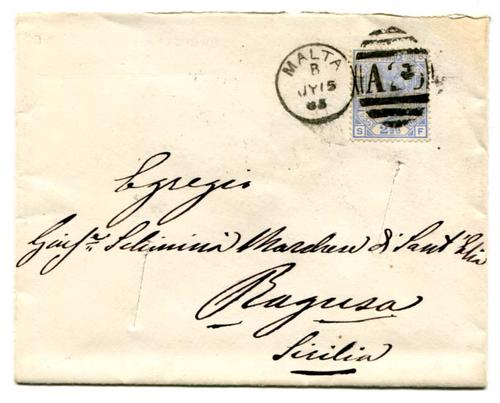 MALTA
B
JY 15
85
A25
S 2½ F
Egregio
Giusᵉ Schininà Marchese di Sant'Elia
Ragusa
Sicilia